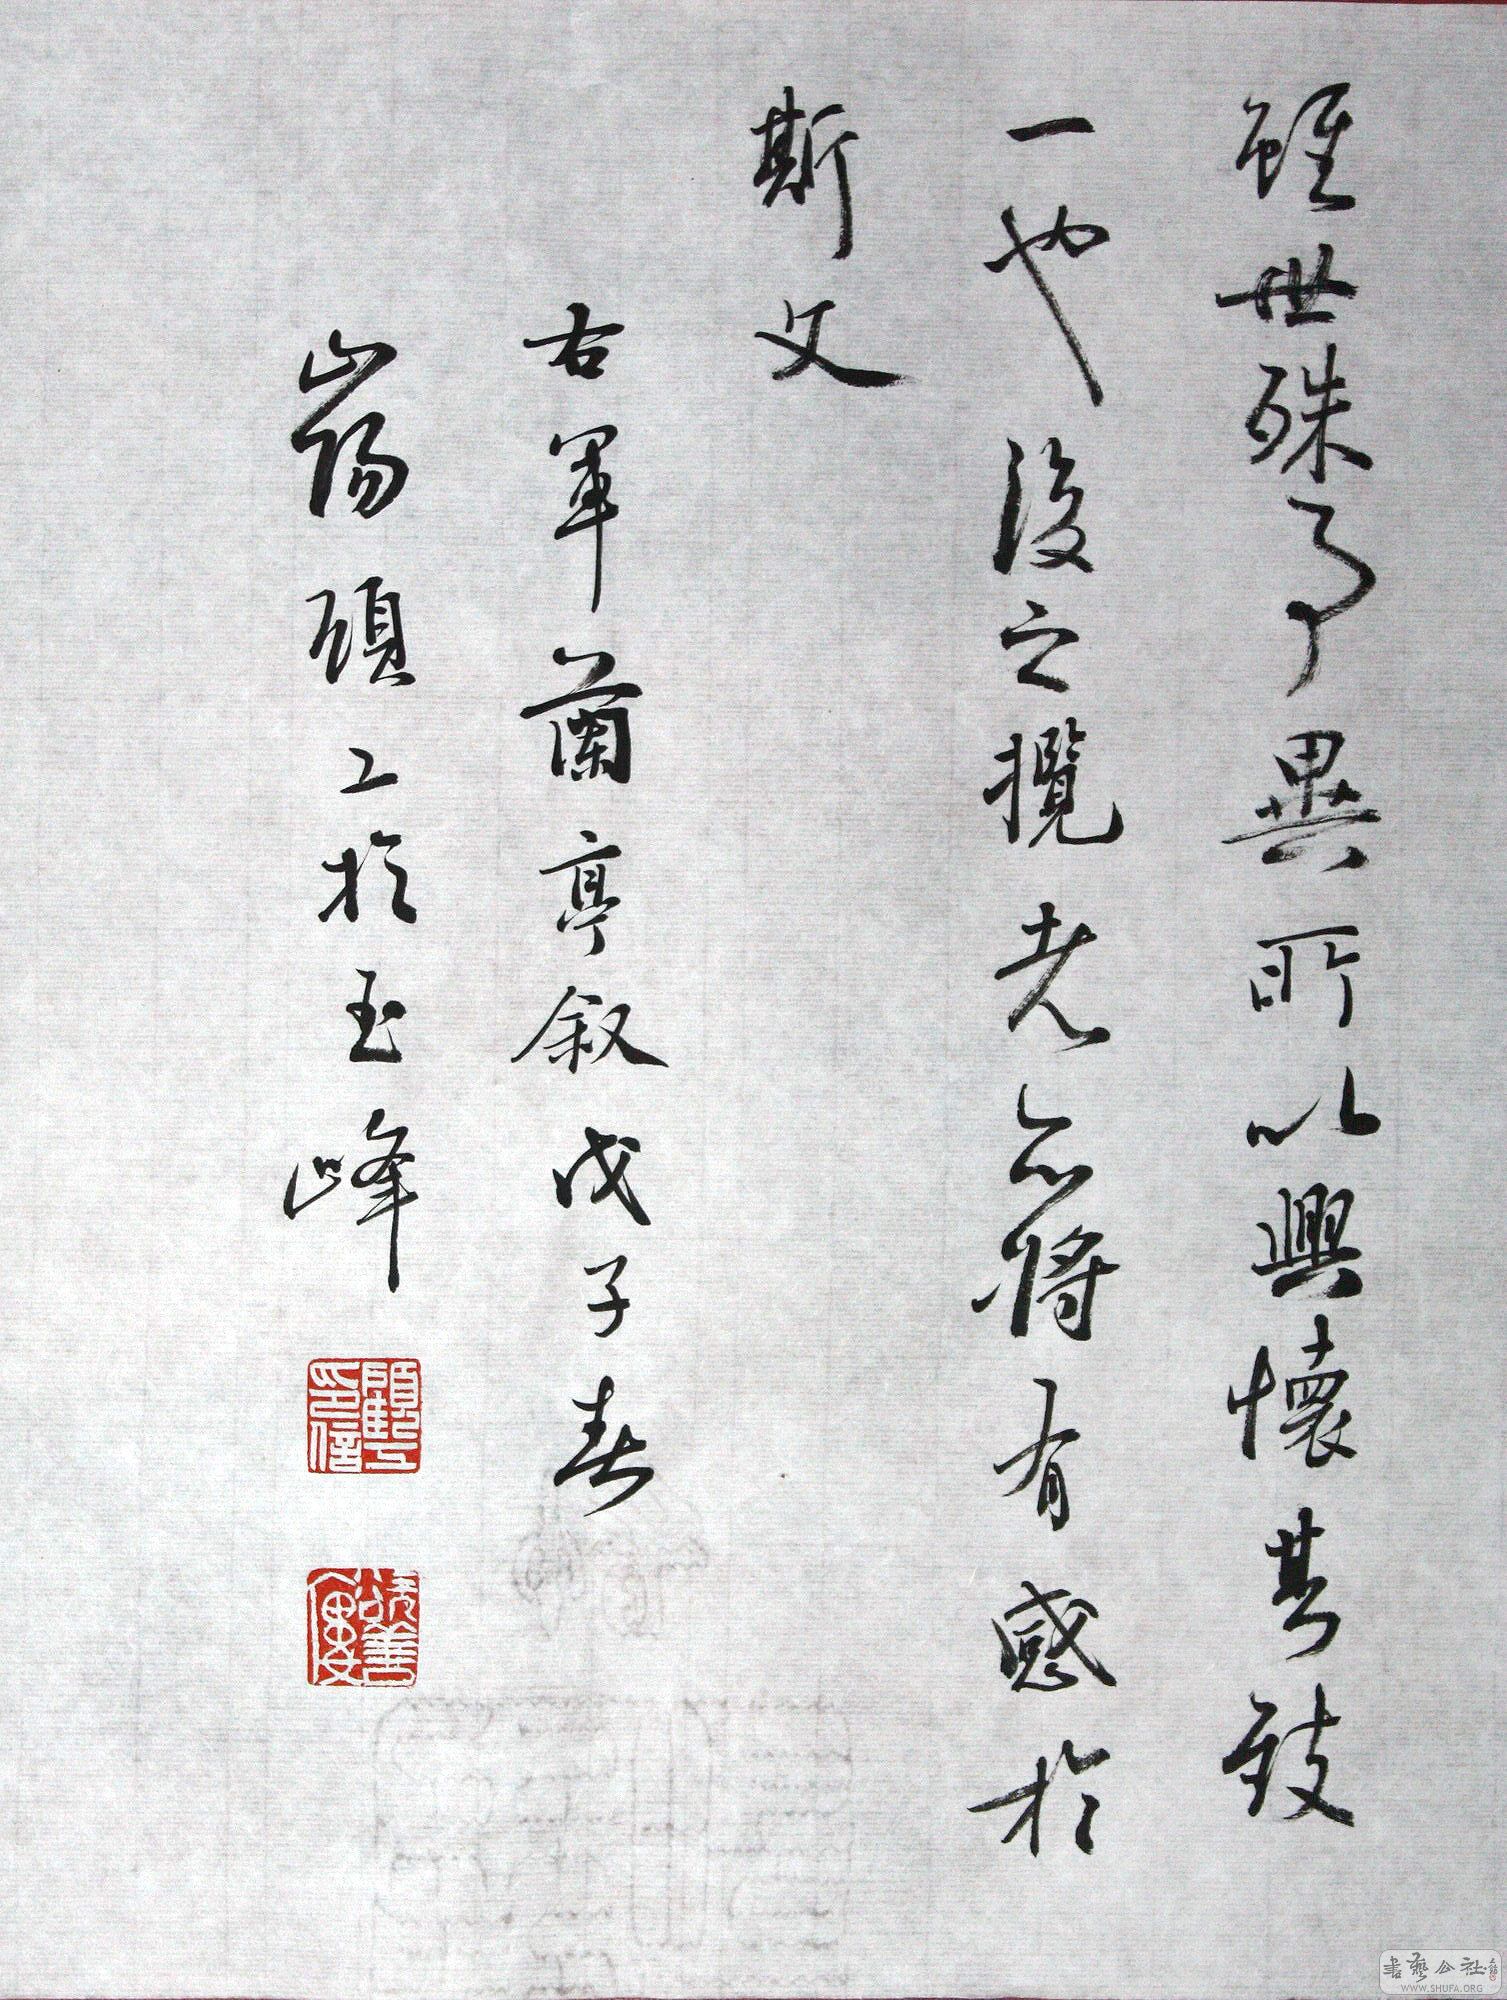 雖世殊事異所以興懷其致
一也後之攬者亦將有感於
斯文
右軍蘭亭叙戊子春
山陽顧工於玉峰
顧工印信
書藝公社
WWW.SHUFA.ORG